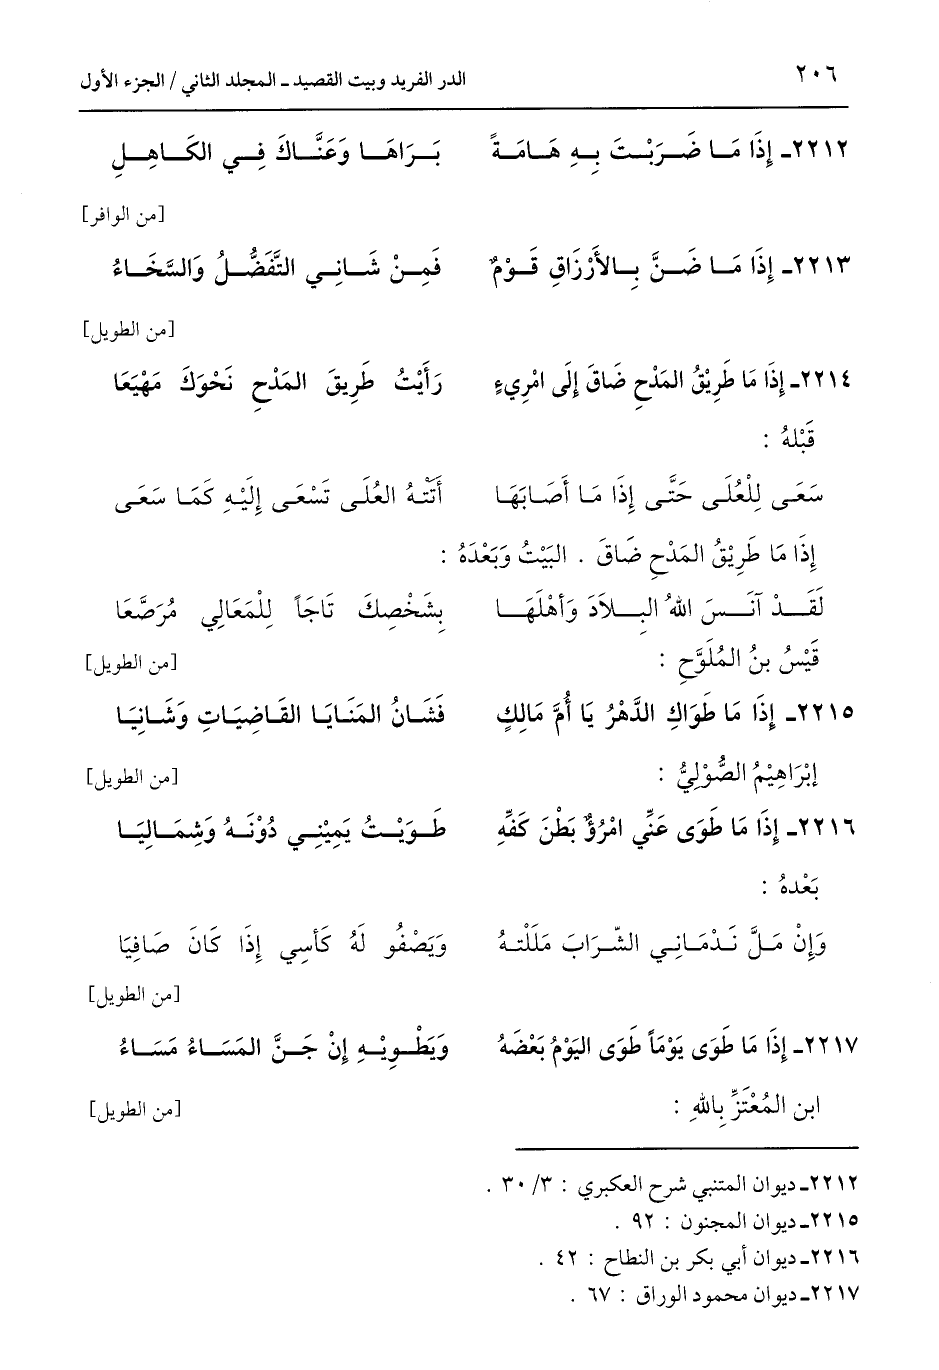 ٢٠٦ الدر الفريد وبيت القصيد ـ المجلد الثاني / الجزء الأول
٢٢١٢ـ إِذَا مَـا ضَـرَبْـتَ بِـهِ هَـامَـةً بَـرَاهَـا وَغَنَّـاكَ فِـي الكَـاهِـلِ
[من الوافر]
٢٢١٣ـ إِذَا مَـا ضَـنَّ بِـالأَرْزَاقِ قَـوْمٌ فَمِـنْ شَـانِـي التَّفَضُّـلُ وَالسَّخَـاءُ
[من الطويل]
٢٢١٤ـ إِذَا مَا طَرِيْقُ المَدْحِ ضَاقَ إِلَى امْرِيءٍ رَأَيْتُ طَرِيقَ المَدْحِ نَحْوَكَ مَهْيَعَا
قَبْلهُ :
سَعَـى لِلْعُلَـى حَتَّـى إِذَا مَـا أَصَـابَهَـا أَتَتْـهُ العُلَـى تَسْعَـى إِلَيْـهِ كَمَـا سَعَـى
إِذَا مَا طَرِيْقُ المَدْحِ ضَاقَ . البَيْتُ وَبَعْدَهُ :
لَقَـدْ آنَـسَ اللهُ البِـلاَدَ وَأهْلَهَـا بِشَخْصِكَ تَاجَاً لِلْمَعَالِي مُرَصَّعَا
قَيْسُ بنُ المُلَوَّحِ : [من الطويل]
٢٢١٥ـ إِذَا مَا طَوَاكِ الدَّهْرُ يَا أُمَّ مَالِكٍ فَشَـانُ المَنَـايَـا القَـاضِيَـاتِ وَشَـانِيَـا
إبْرَاهِيْمُ الصُّوْلِيُّ : [من الطويل]
٢٢١٦ـ إِذَا مَا طَوَى عَنِّي امْرُؤٌ بَطْنَ كَفِّهِ طَـوَيْـتُ يَمِيْنِـي دُوْنَـهُ وَشِمَـالِيَـا
بَعْدهُ :
وَإِنْ مَـلَّ نَـدْمَـانِـي الشّرَابَ مَلَلْتـهُ وَيَصْفُو لَهُ كَأسِي إِذَا كَانَ صَافِيَا
[من الطويل]
٢٢١٧ـ إِذَا مَا طَوَى يَوْمَاً طَوَى اليَوْمُ بَعْضَهُ وَيَطْـوِيْـهِ إِنْ جَـنَّ المَسَـاءُ مَسَـاءُ
ابن المُعْتَزِّ بِاللهِ : [من الطويل]
٢٢١٢ـ ديوان المتنبي شرح العكبري : ٣/ ٣٠ .
٢٢١٥ـ ديوان المجنون : ٩٢ .
٢٢١٦ـ ديوان أبي بكر بن النطاح : ٤٢ .
٢٢١٧ـ ديوان محمود الوراق : ٦٧ .